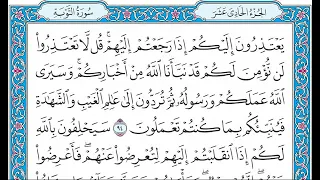 سُورَةُ التَّوْبَةِ
الجُزْءُ الحَادِي عَشَرَ
يَعْتَذِرُونَ إِلَيْكُمْ إِذَا رَجَعْتُمْ إِلَيْهِمْ ۚ قُل لَّا تَعْتَذِرُوا۟
لَن نُّؤْمِنَ لَكُمْ قَدْ نَبَّأَنَا ٱللَّهُ مِنْ أَخْبَارِكُمْ ۚ وَسَيَرَى
ٱللَّهُ عَمَلَكُمْ وَرَسُولُهُۥ ثُمَّ تُرَدُّونَ إِلَىٰ عَـٰلِمِ ٱلْغَيْبِ وَٱلشَّهَـٰدَةِ
فَيُنَبِّئُكُم بِمَا كُنتُمْ تَعْمَلُونَ ٩٤ سَيَحْلِفُونَ بِٱللَّهِ
لَكُمْ إِذَا ٱنقَلَبْتُمْ إِلَيْهِمْ لِتُعْرِضُوا۟ عَنْهُمْ ۖ فَأَعْرِضُوا۟